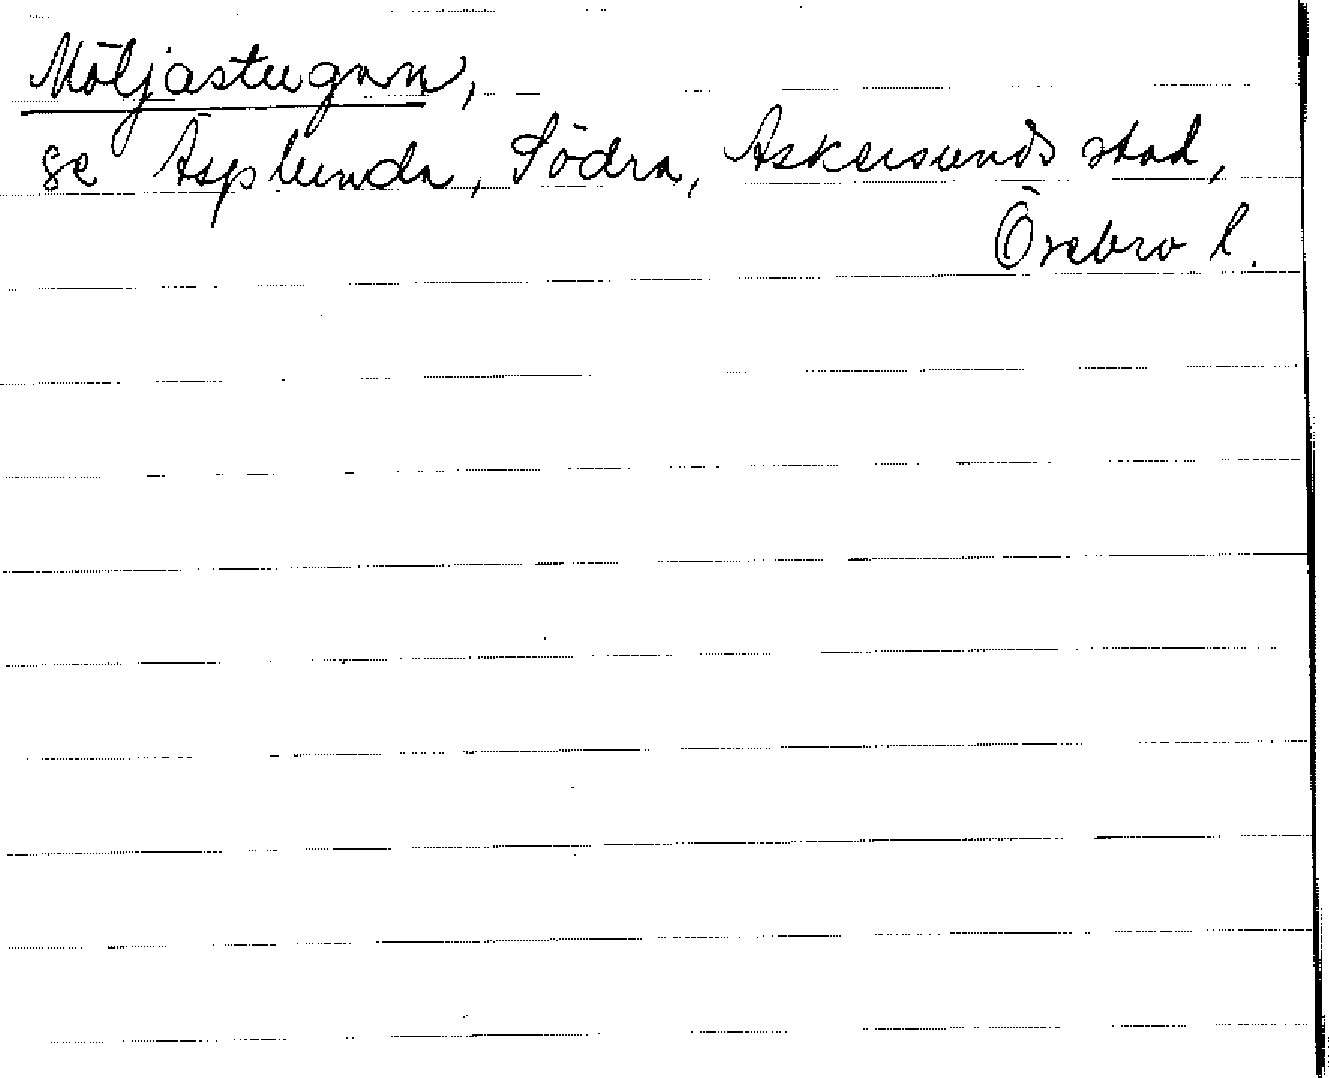 Möljastugan,
se Äsplunda, Södra, Askersunds stad,
Örebro l.